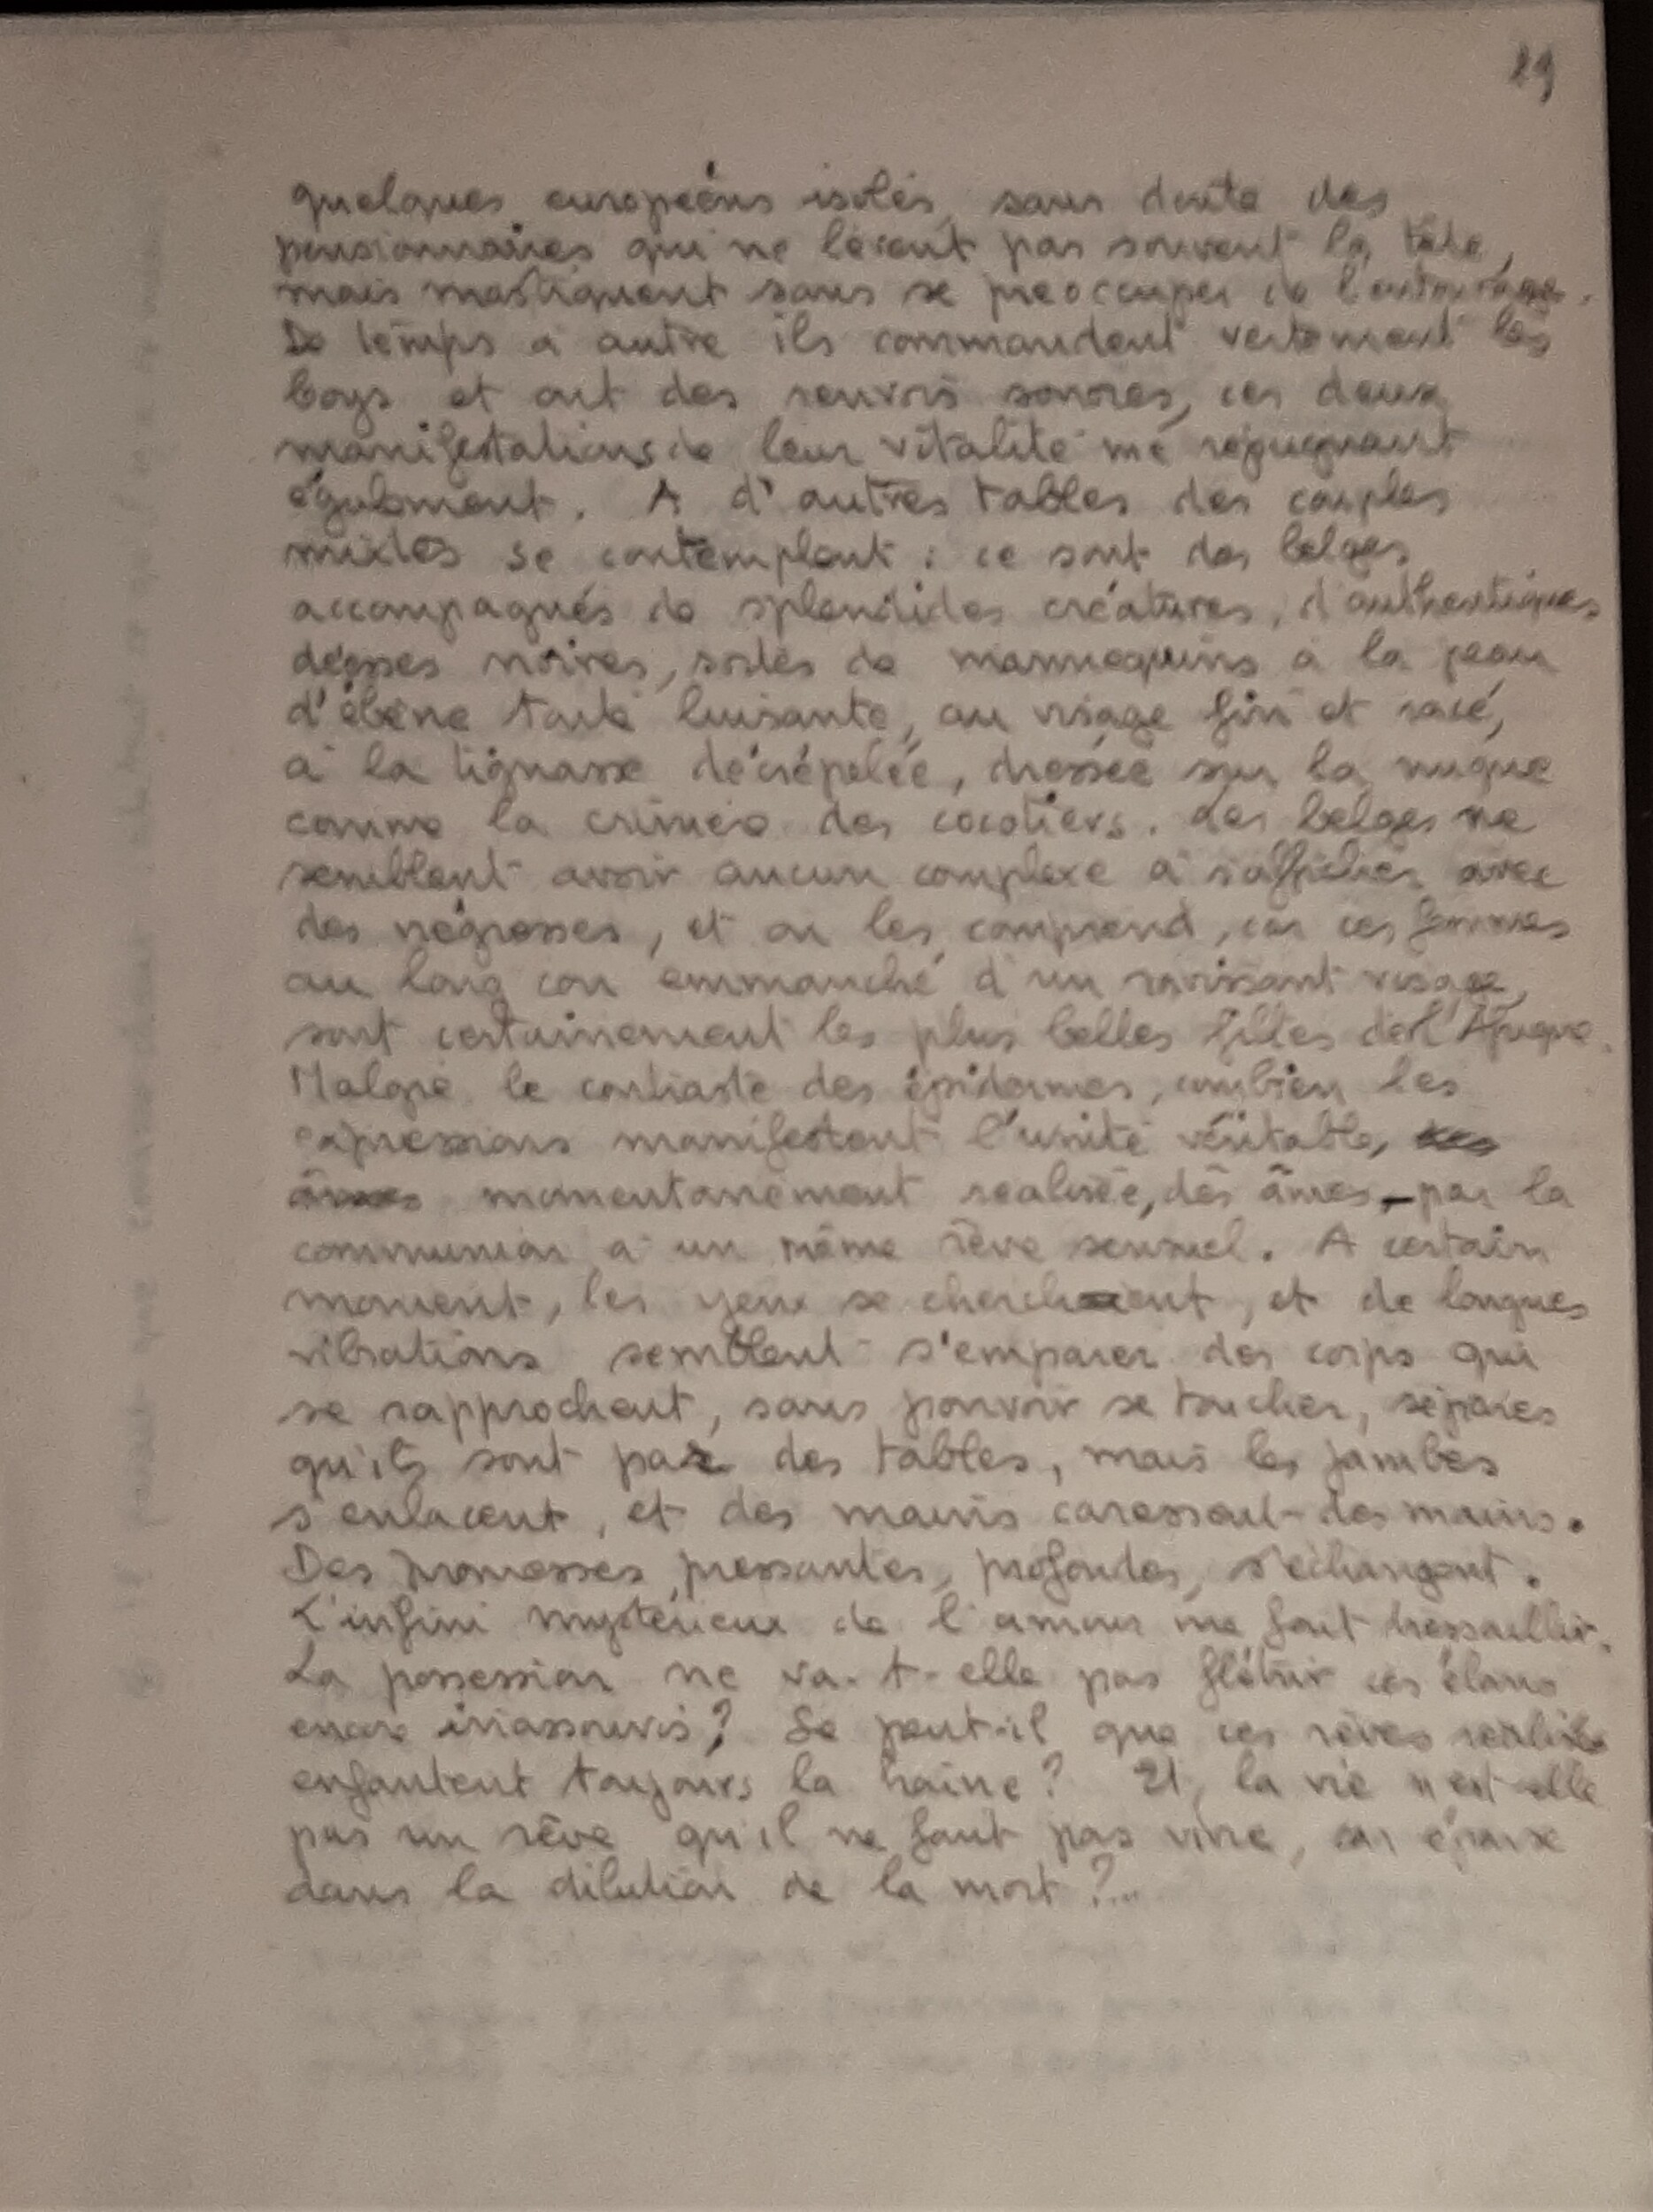 29
quelques européens isolés, sans doute des
pensionnaires qui ne lèvent pas souvent la tête,
mais mastiquent sans se préoccuper de l'entourage.
De temps à autre ils commandent vertement les
boys et ont des renvois sonores, ces deux
manifestations de leur vitalité me répugnant
également. A d'autres tables des couples
mixtes se contemplent : ce sont des belges
accompagnés de splendides créatures, d'authentiques
déesses noires, sortes de mannequins à la peau
d'ébène toute luisante, au visage fin et racé,
à la tignasse décrépelée, dressée sur la nuque
comme la crinière des cocotiers. Les belges ne
semblent avoir aucun complexe à s'afficher avec
des négresses, et on les comprend, car ces femmes
au long cou emmanché d'un ravissant visage,
sont certainement les plus belles filles de l'Afrique.
Malgré le contraste des épidermes, combien les
expressions manifestent l'unité véritable,
momentanément réalisée, des âmes, par la
communion à un même rêve sensuel. A certain
moment, les yeux se cherchent, et de longues
vibrations semblent s'emparer des corps qui
se rapprochent, sans pouvoir se toucher, séparés
qu'ils sont par des tables, mais les jambes
s'enlacent, et des mains caressent des mains.
Des promesses pressantes, profondes, s'échangent.
L'infini mystérieux de l'amour me fait tressaillir.
La possession ne va-t-elle pas flétrir ces élans
encore inassouvis ? Se peut-il que ces rêves réalisés
enfantent toujours la haine ? Et, la vie n'est-elle
pas un rêve qu'il ne faut pas vivre, car
dans la dilution de la mort ?...